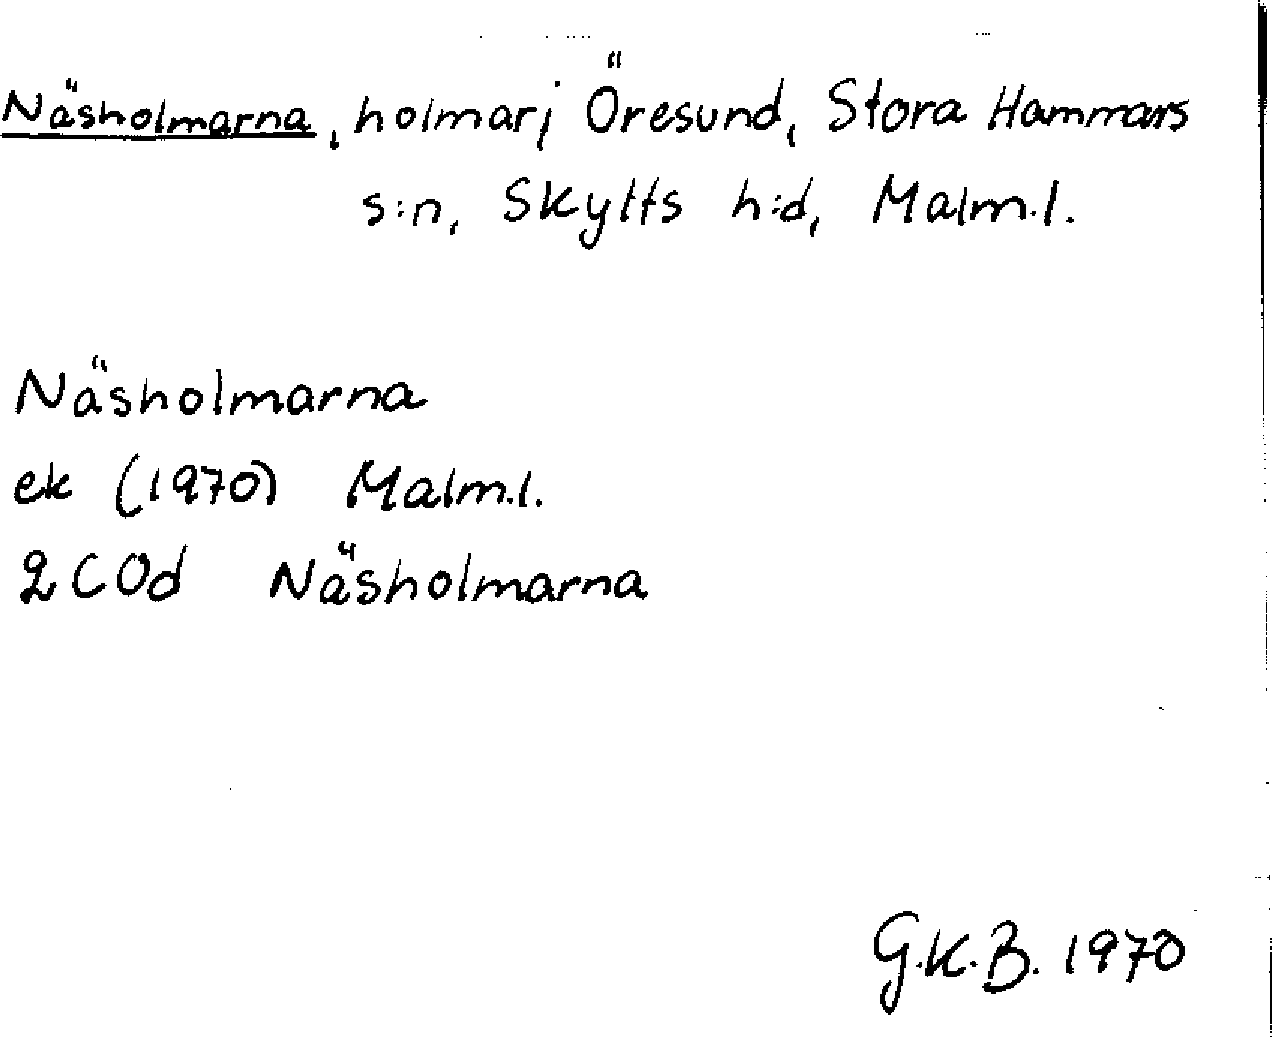 Näsholmarna, holmar i Öresund, Stora Hammars
s:n, Skytts h:d, Malm.l.
Näsholmarna
ek (1970) Malm.l.
2 C Od Näsholmarna
G.K.B. 1970